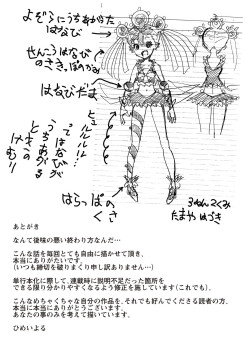 よぞらにうちあがった
はなび
せんこうはなび
のさきっぽ
はなびだま
ヒュルルル…
って
はなびが
うちあがる
ときの
けむり
はらっぱの
くさ
3ねん2くみ
たまやはづき
あとがき
なんて後味の悪い終わり方なんだ…
こんな話を毎回とても自由に描かせて頂き、
本当にありがたいです。
(いつも締切を破りまくり申し訳ありません…)
単行本化に際して、連載時に説明不足だった箇所を
できる限り分かりやすくなるよう修正を施しています(これでも)。
こんなめちゃくちゃな自分の作品を、それでも好んでくださる読者の方、
本当に本当にありがとうございます。
あなたの事のみを考えて描いています。
ひめいよる